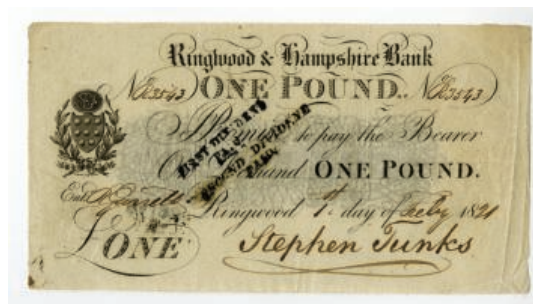 Ringwood & Hampshire Bank
ONE POUND
I Promise to pay the Bearer
On Demand ONE POUND.
FIRST DIVIDEND
SECOND DIVIDEND
PAID
Entd
Ringwood 1st day of Feby 1821
£ONE
Stephen Tunks